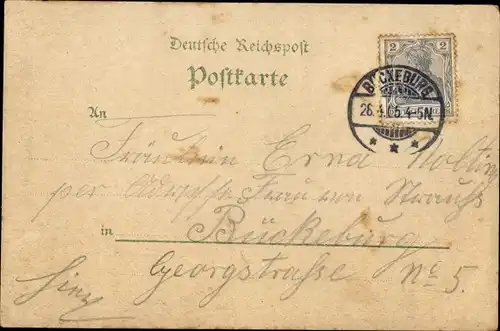 Deutsche Reichspost
Postkarte
2 2
BÜCKEBURG
26.4.05.4-5N.
An
Fräulein Erna Nolting
per Frau von Strauss
in Bückeburg
Georgstraße No 5.